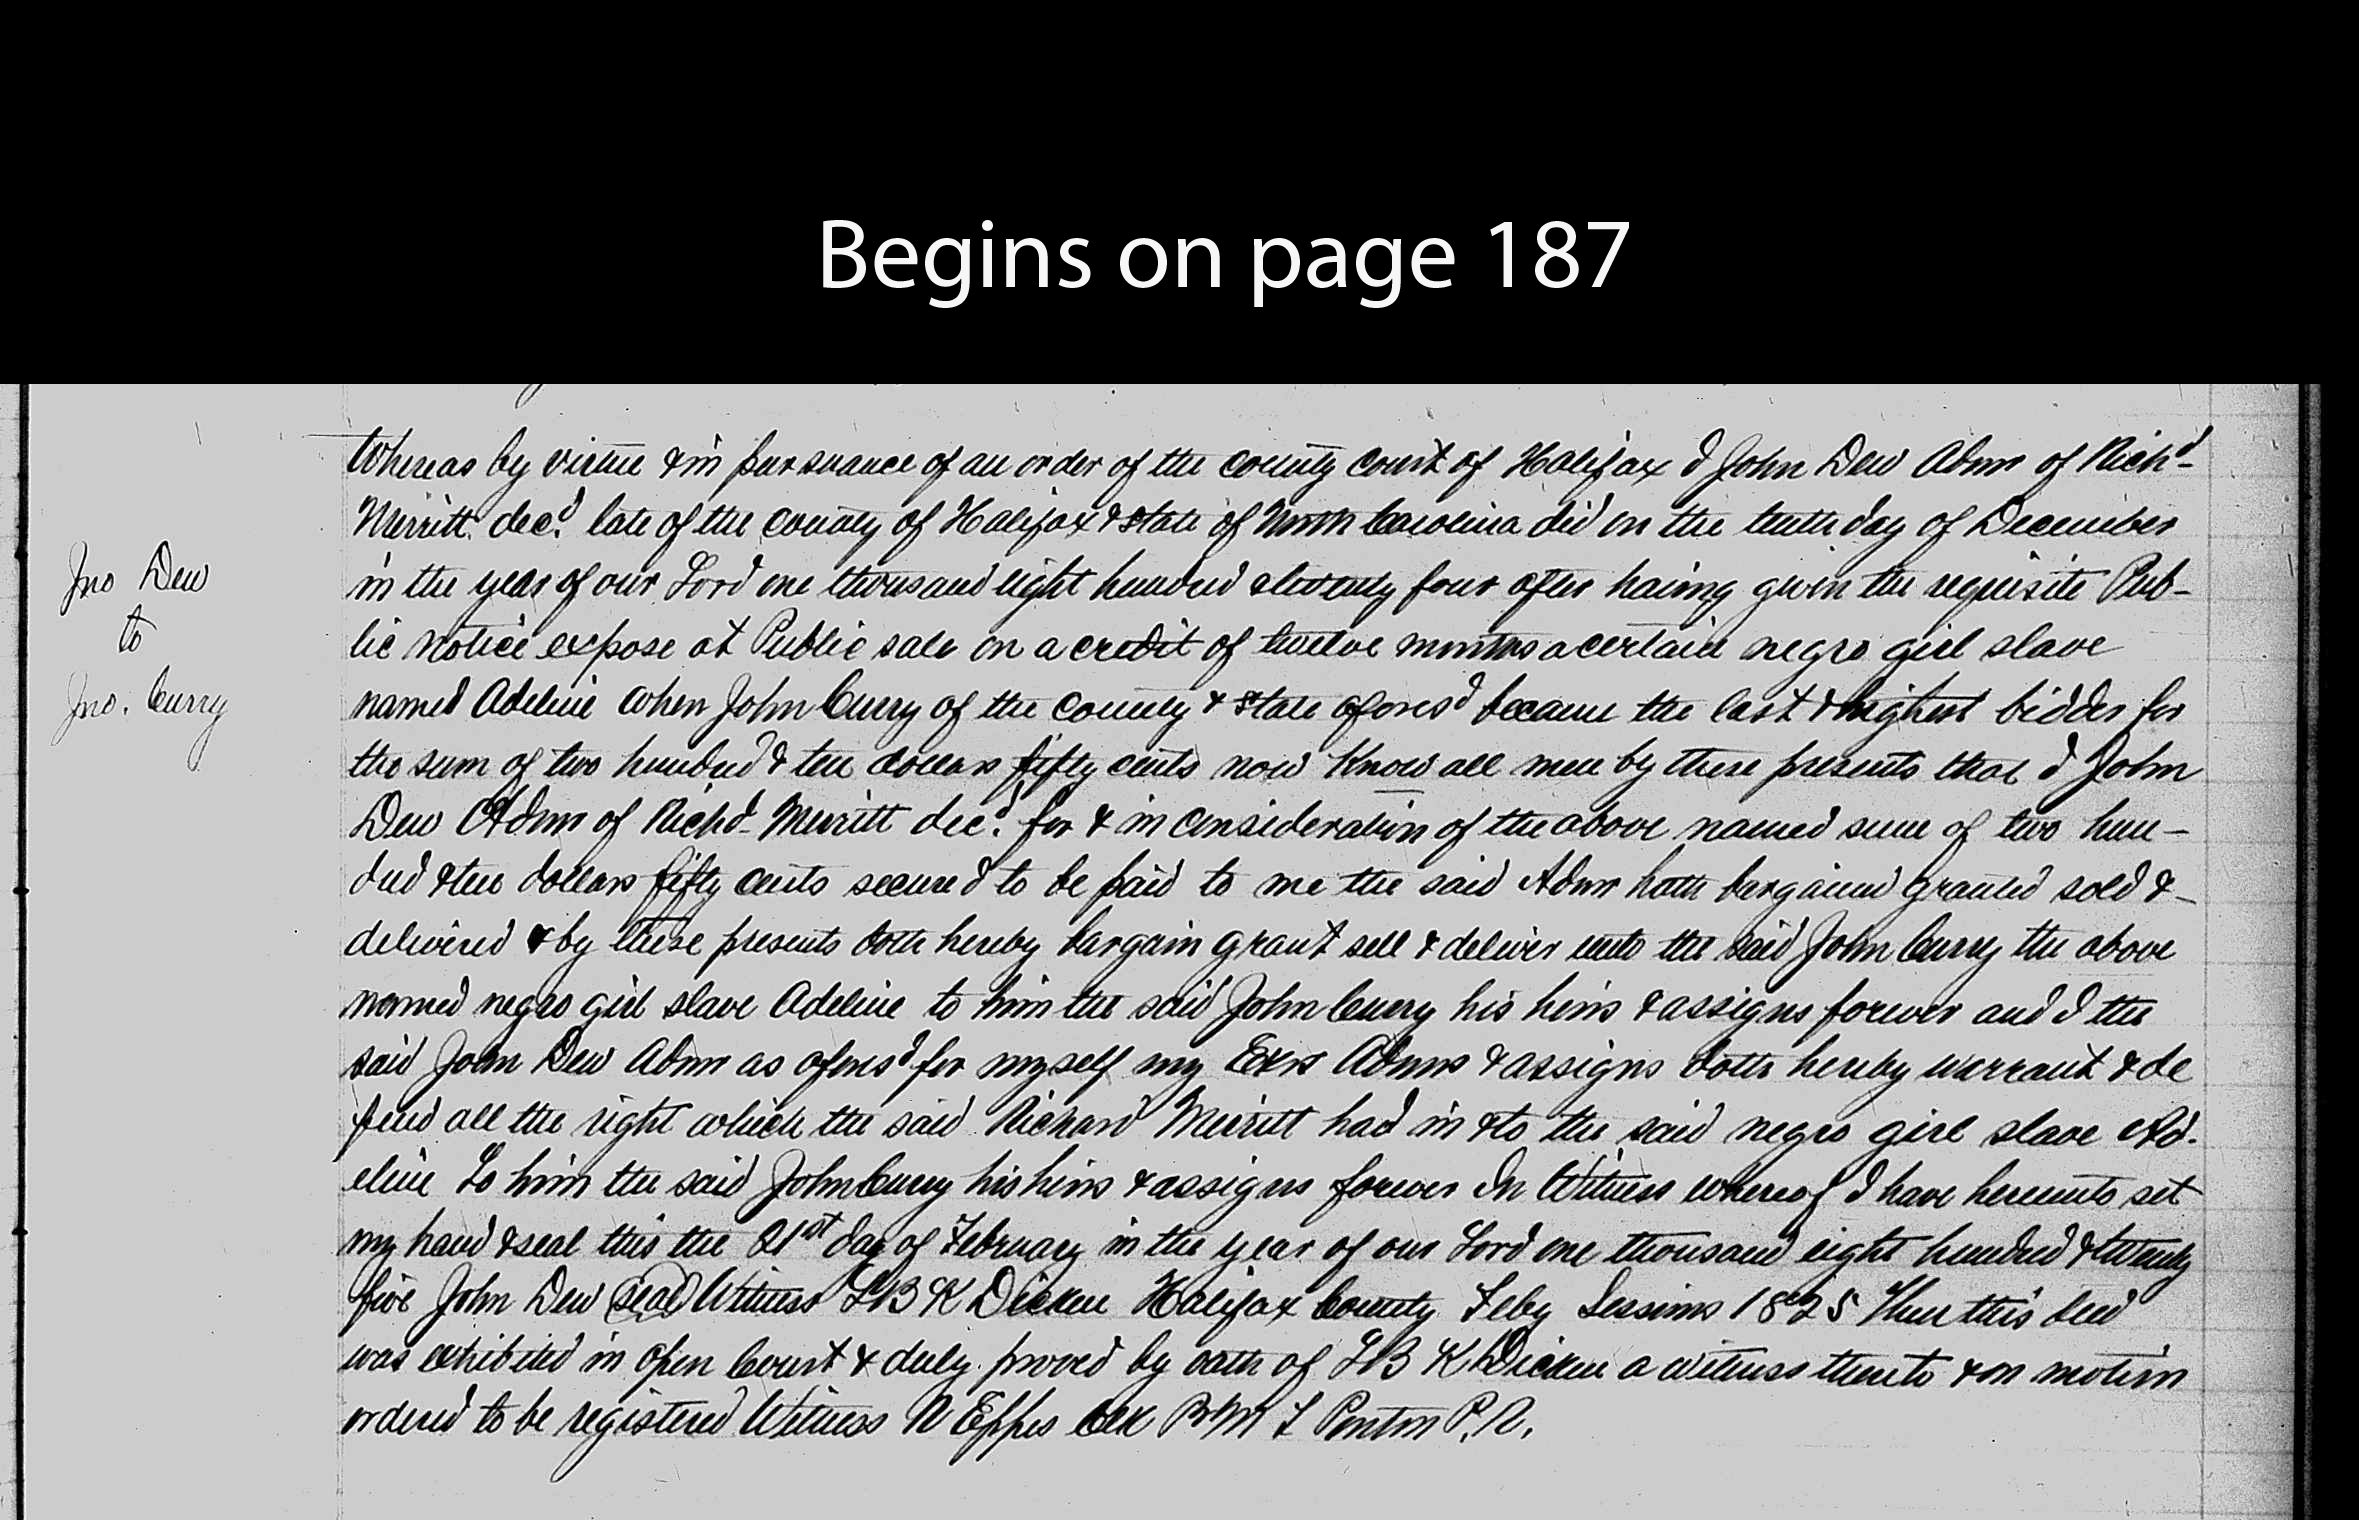 Begins on page 187
Whereas by virtue & in pursuance of an order of the county court of Halifax I John Dew Admr of Richd-
Merritt decd. late of the county of Halifax & state of North Carolina did on the tenth day of December
in the year of our Lord one thousand eight hundred & twenty four after haing given the requisite Pub-
lic notice expose at Public sale on a credit of twelve months a certain negro girl slave
Jno Dew
to
Jno. Curry
named Adeline when John Curry of the county & state aforesd became the last & highest bidder for
the sum of two hundred & ten dollars fifty cents now Know all men by these presents that I John
Dew Admr of Richd- Merritt decd. for & in consideration of the above named sum of two hun-
dred & ten dollars fifty cents secured to be paid to me the said Admr hath bargained granted sold &-
delivered & by these presents doth hereby bargain grant sell & deliver unto the said John Curry the above
named negro girl slave Adeline to him the said John Curry his heirs & assigns forever and I the
said John Dew Admr as aforesd for myself my Exrs Admrs & assigns doth hereby warrant & de
fend all the right which the said Richard Merritt had in & to the said negro girl slave Ad-
eline To him the said John Curry his heirs & assigns forever In Witness whereof I have hereunto set
my hand & seal this the 21st day of February in the year of our Lord one thousand eight hundred & twenty
five John Dew (seal) Witness LB K Dicken Halifax County Feby Sessions 1825 Then this deed
was exhibited in open Court & duly proved by oath of LB K Dicken a witness thereto & on motion
ordered to be registered Witness R Eppes Clk By M T Ponton P.R.